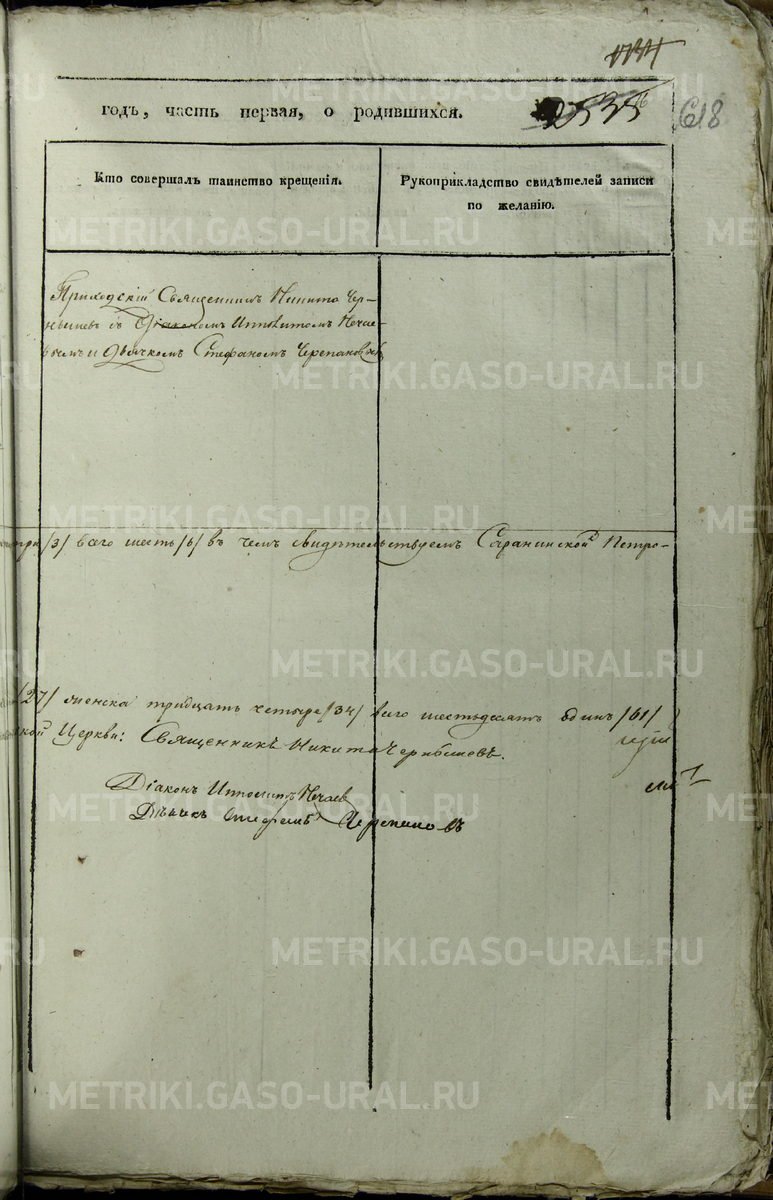 годъ, часть первая, о родившихся.
2535
618
Кто совершалъ таинство крещенія.
Рукоприкладство свидѣтелей записи по желанію.
Приходскій Священникъ Никита Чер-
нышевъ съ Діакономъ Ипполитомъ Нечае-
вымъ и дьячкомъ Стефаномъ Черепановымъ
три /3/ всего шесть /6/ въ чемъ свидѣтельствуемъ Саранинской Петро-
/27/ женска тридцать четыре /34/ всего шестьдесятъ одинъ /61/
ской Церкви: Священникъ Никита Чернышевъ.
Діаконъ Ипполитъ Нечаев
Дьячекъ Стефанъ Черепановъ
METRIKI.GASO-URAL.RU